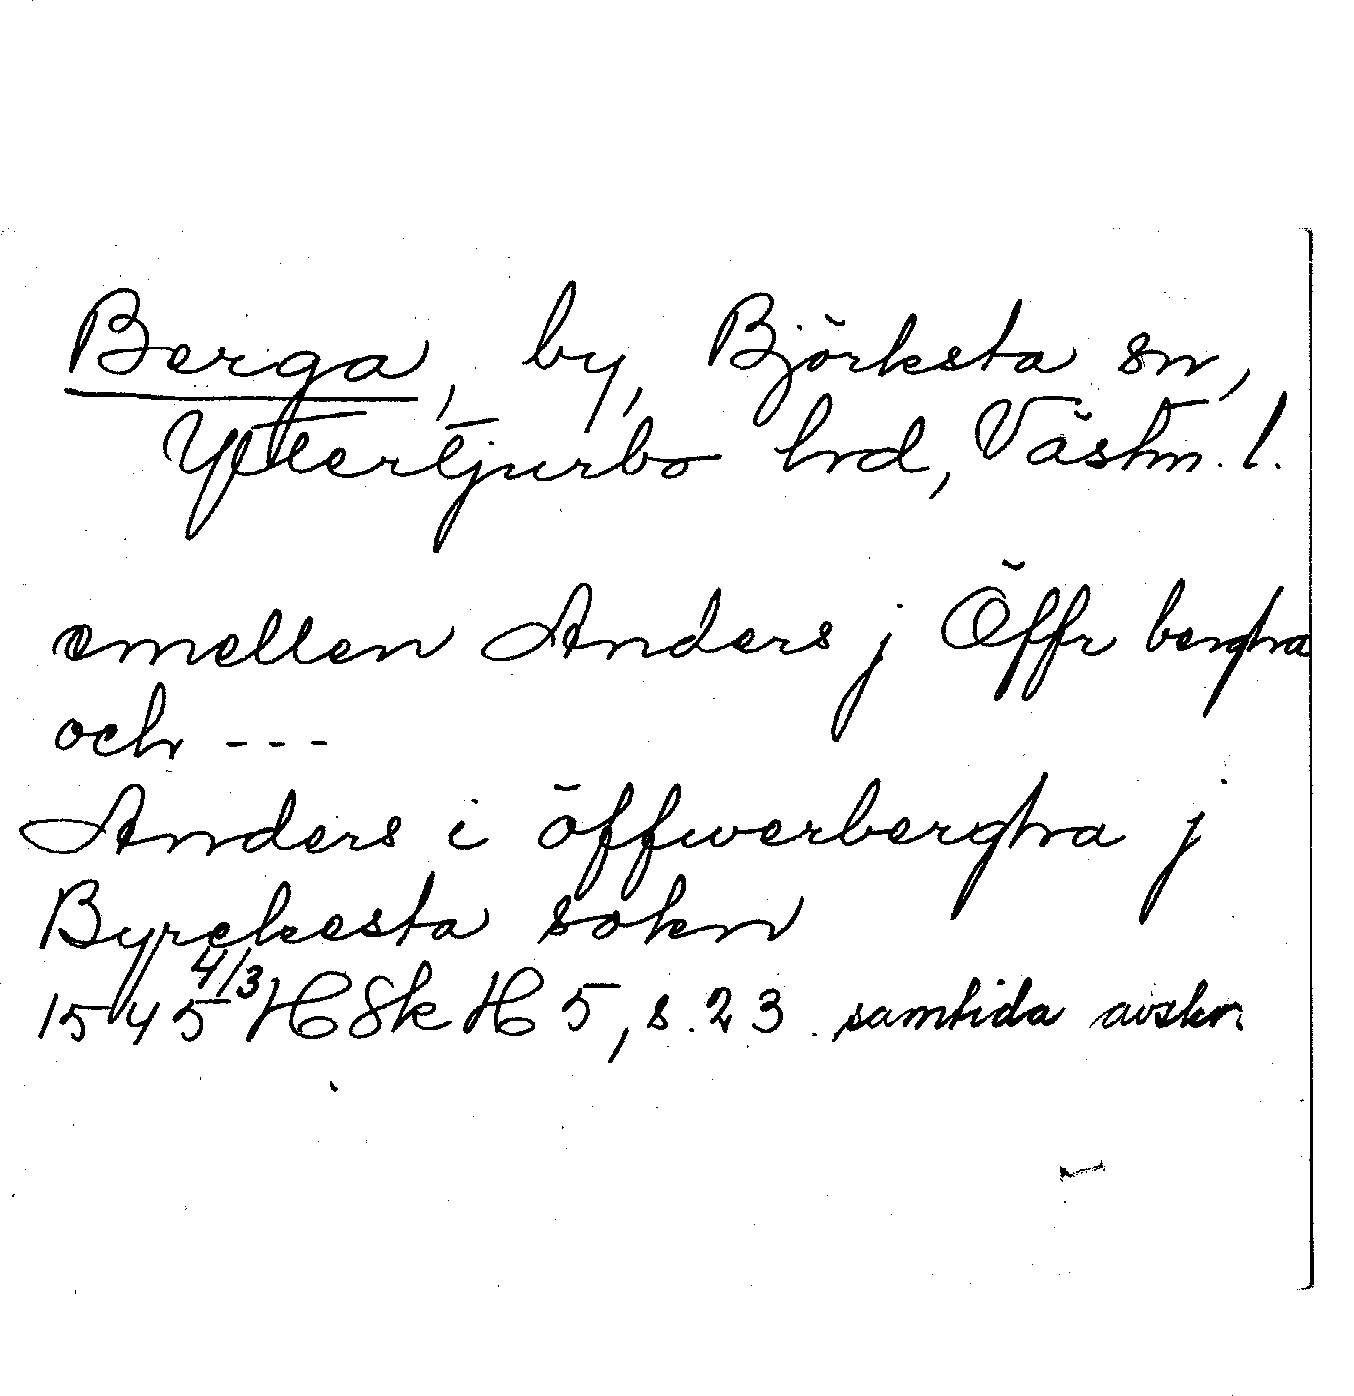 Berga, by, Björksta sn,
Yttertjurbo hd, Västm. l.
emellen Anders j Öffr bergha
och ---
Anders i öffwerbergha j
Byrckesta sokn
1545 4/3 HSkH 5, s. 23. samtida avskr.